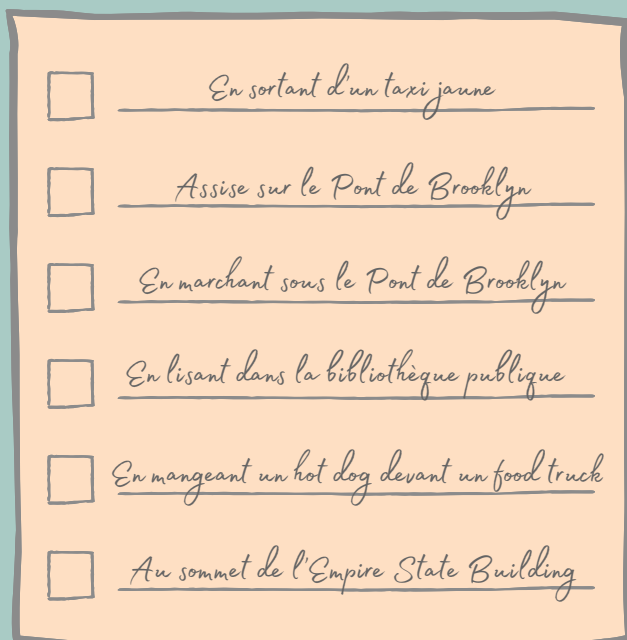 En sortant d'un taxi jaune
Assise sur le Pont de Brooklyn
En marchant sous le Pont de Brooklyn
En lisant dans la bibliothèque publique
En mangeant un hot dog devant un food truck
Au sommet de l'Empire State Building